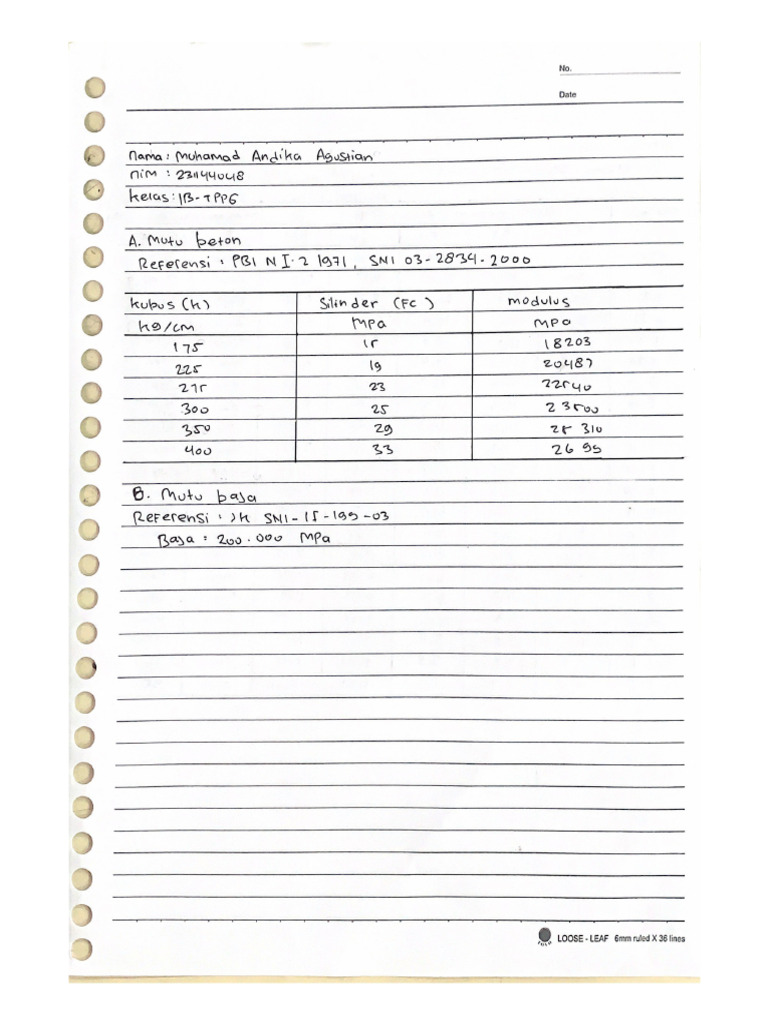 No.
Date
Nama : Muhamad Andika Agustian
NIM : 231144048
Kelas : 1B-TPPG
A. Mutu beton
Referensi : PBI N I-2 1971, SNI 03-2834-2000
Kubus (K) Silinder (FC) modulus
kg/cm MPa MPa
175 15 18203
225 19 20487
275 23 22540
300 25 23500
350 29 25 310
400 33 26 99
B. Mutu baja
Referensi : SNI-15-199-03
Baja : 200.000 MPa
LOOSE - LEAF 6mm ruled X 36 lines